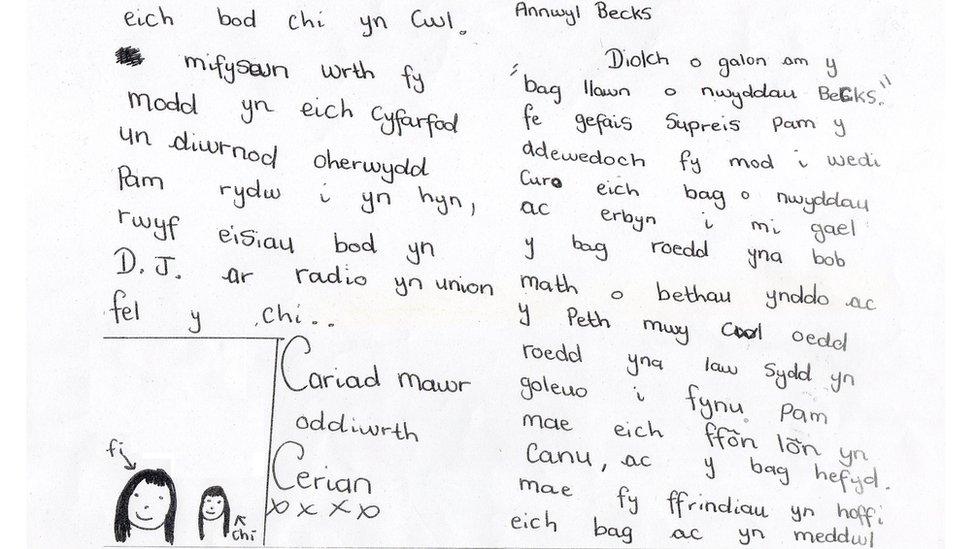 Annwyl Becks
Diolch o galon am y
"bag llawn o nwyddau Becks."
fe gefais Supreis Pam y
ddewedoch fy mod i wedi
Curo eich bag o nwyddau
ac erbyn i mi gael
y bag roedd yna bob
math o bethau ynddo ac
y Peth mwy Cwl oedd
roedd yna law Sydd yn
goleuo i fynu Pam
mae eich ffôn lôn yn
Canu, ac y bag hefyd.
mae fy ffrindiau yn hoffi
eich bag ac yn meddwl
eich bod chi yn Cwl.
mifyswn wrth fy
modd yn eich Cyfarfod
un diwrnod oherwydd
Pam rydw i yn hyn,
rwyf eisiau bod yn
D.J. ar radio yn union
fel y chi..
Cariad mawr
oddiwrth
Cerian
x x x x
fi
chi